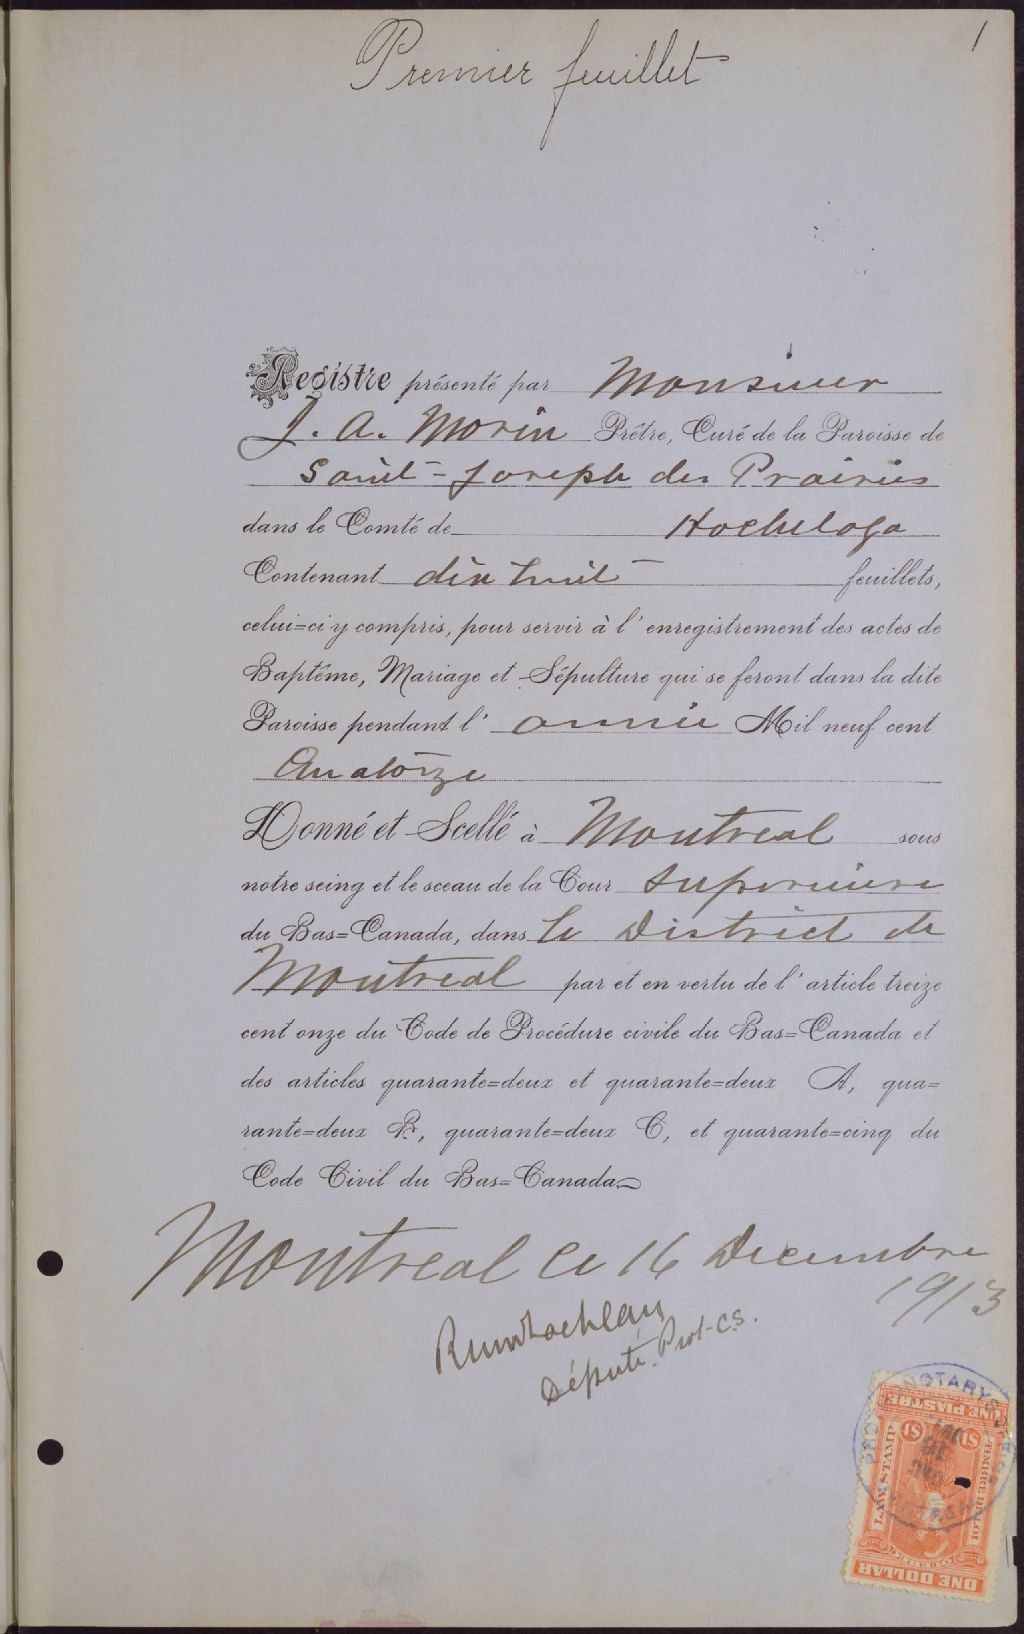 1
Premier feuillet
Registre présenté par Monsieur
J. A. Morin Prêtre, Curé de la Paroisse de
Saint-Joseph des Prairies
dans le Comté de Hochelaga
Contenant dix huit feuillets,
celui=ci y compris, pour servir à l'enregistrement des actes de
Baptême, Mariage et Sépulture qui se feront dans la dite
Paroisse pendant l'année Mil neuf cent
Quatorze
Donné et Scellé à Montreal sous
notre seing et le sceau de la Cour Superieure
du Bas=Canada, dans le District de
Montreal par et en vertu de l'article treize
cent onze du Code de Procédure civile du Bas=Canada et
des articles quarante=deux et quarante=deux A, qua=
rante=deux B, quarante=deux C, et quarante=cinq du
Code Civil du Bas=Canada
Montreal ce 16 Decembre
1913
Député Prot. C.S.
UNE PIASTRE
$1 $1
LAW STAMP
TIMBRE DE LOI
QUEBEC
ONE DOLLAR